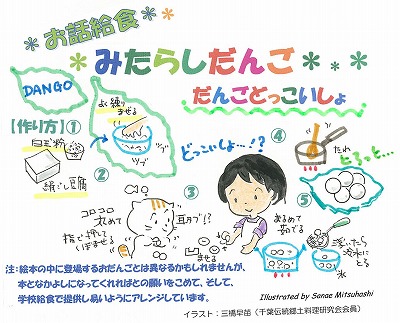 *お話給食*
*みたらしだんご***
だんごどっこいしょ
DANGO
【作り方】①
よく練り
まぜる
白玉粉
ツブ
ツブ
絹ごし豆腐
②
コロコロ
丸めて
指で押して
くぼませる
③
耳タブ!?
どっこいしょ…!?
まるめて
茹でる
④
たれ
とろっと…
⑤
浮いたら
冷水に
とる
氷
注:絵本の中に登場するおだんごとは異なるかもしれませんが、
本となかよしになってくれればとの願いをこめて、そして、
学校給食で提供し易いようにアレンジしています。
Illustrated by Sanae Mitsuhashi
イラスト:三橋早苗(千葉伝統郷土料理研究会会員)